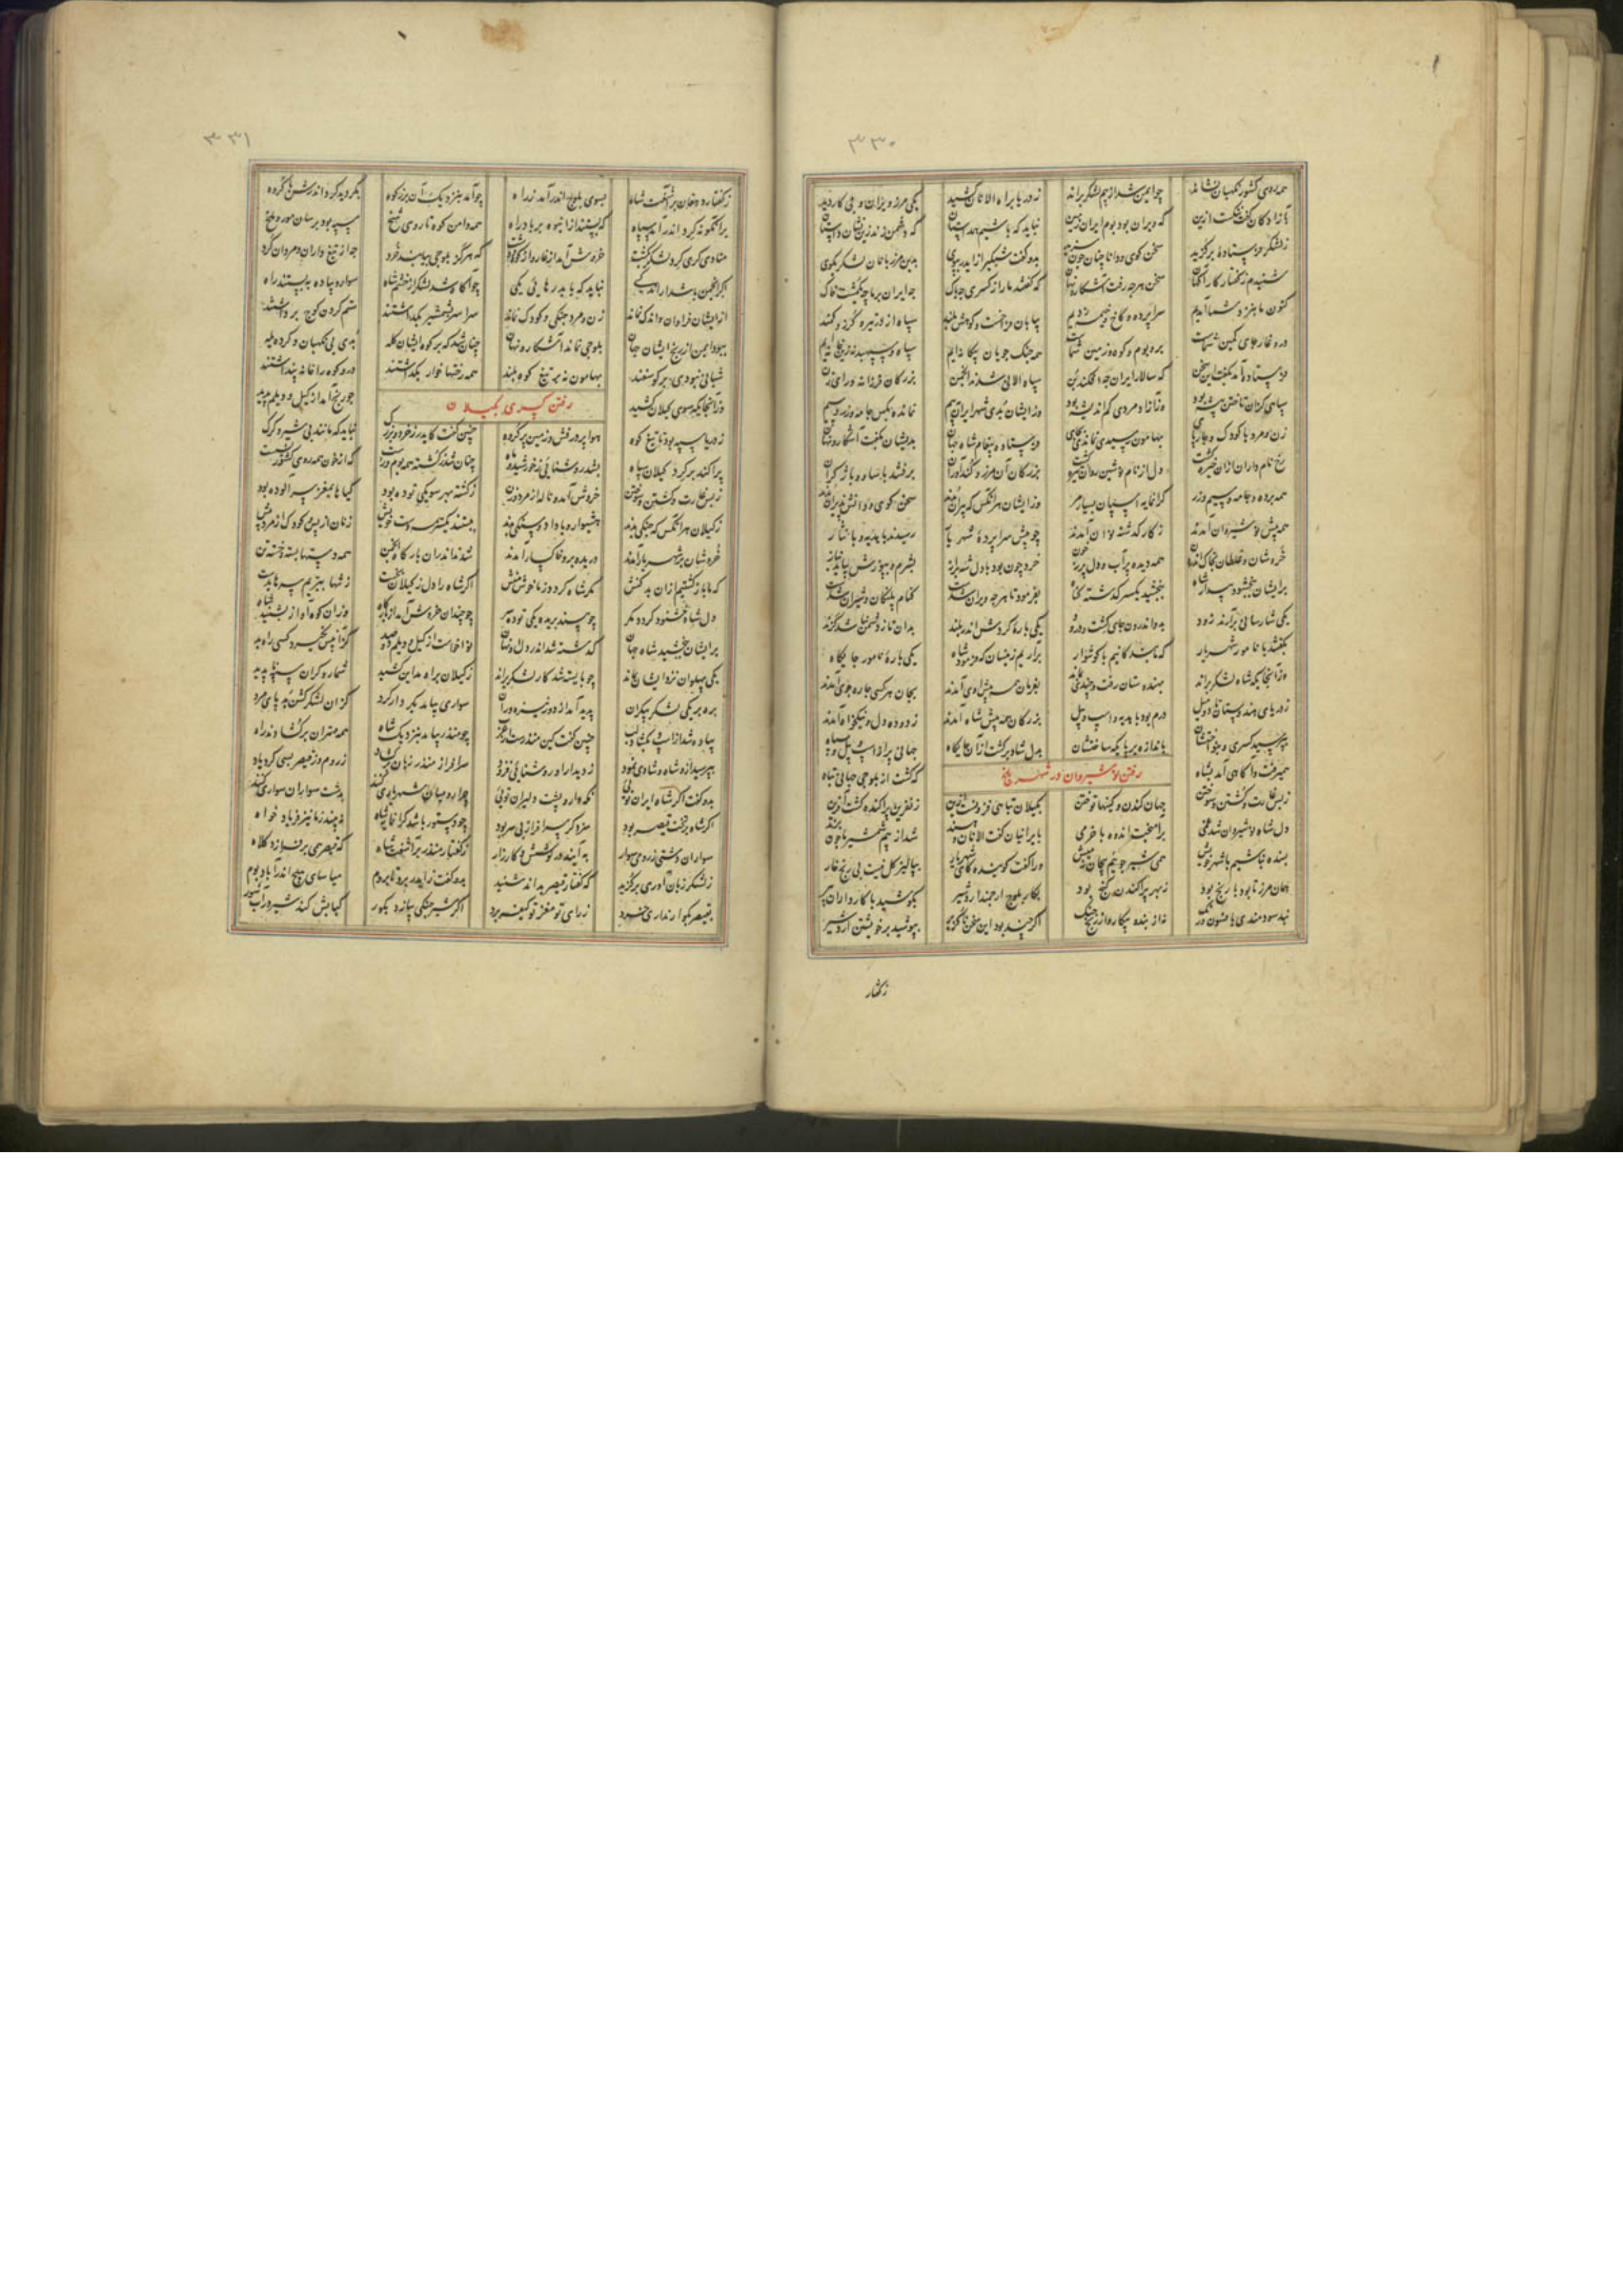 ۳۳۰
همه روی کشور نگهبان نشاند چو ایمن شد از بیم لشکر براند ز دریا براه الانان کشید یکی مرز ویران و بی کار دید
بآزادکان گفت ننگست ازین که ویران بود بوم ایران زمین نباید که باشیم همداستان که دشمن زند زین نشان داستان
ز لشکر فرستادۀ برکزید سخن کوی و دانا چنان چون سزید بدو کفت شبکیر از ایدر بپوی بدین مرزبانان لشکر بکوی
شنیدم ز کفتار کارآکهان سخن هرچه رفت آشکار و نهان که کفتند ما را ز کسری چه باک چه ایران بر ما چه یکمشت خاک
کنون ما بنزد شما آمدیم سراپرده و کاخ و خیمه زدیم بیابان فراخست و کوهش بلند سپاه از در تیر و کرز و کمند
در و غار جای کمین شماست بر و بوم و کوه و زمین شماست همه جنک جویان بیکانه ایم سپاه و سپهبد نه زین خانه ایم
فرستاده آمد بکفت این سخن که سالار ایران چه افکند بن سپاه الانی شدند انجمن بزرکان فرزانه و رای زن
سپاهی کزان تاختن پیشه بود وزآزاد مردی کم اندیشه بود وز ایشان بدی شهر ایران ببیم نمانده بکس جامه و زر و سیم
زن و مرد با کودک و چارپای بهامون رسیدی نماندی بجای فرستاده پیغام شاه جهان بدیشان بکفت آشکار و نهان
رخ نامداران ازان خیره کشت دل از نام نوشین روان تیره کشت بزرکان آن مرز و کندآوران برفتند با ساو و باژ کران
همه برده و جامه و سیم و زر کرانمایه اسپان بسیار مر وز ایشان هرآنکس که پیران بدند سخن کوی و دانش پذیران بدند
همه پیش نوشیروان آمدند ز کار کذشته نوان آمدند چو پیش سراپردۀ شهریار رسیدند با هدیه و با نثار
خروشان و غلطان بخاک اندرون همه دیده پر آب و دل پر ز خون خرد چون بود با بشرم و بپوزش نیاید نیاز
برایشان ببخشود بیدار شاه ببخشید یکسر کذشته کناه بفرمود تا هرچه ویران شدست کنام پلنکان و شیران شدست
یکی شارسانی برآرند زود بدو اندرون جای کشت و درود یکی بارۀ کردش اندر بلند بدان تا ز دشمن نباشد کزند
بکفتند با نامور شهریار که ما بندکانیم با کوشوار برآریم زینسان که فرمود شاه یکی بارۀ نامور جایکاه
وزآنجایکه شاه لشکر براند بهندوستان رفت و چندی بماند بفرمان همه پیش اوی آمدند بجان هر کسی چاره جوی آمدند
ز دریای هندوستان تا دو میل درم بود با هدیه و اسپ و پیل بزرکان همه پیش شاه آمدند ز دوده دل و نیکخواه آمدند
بپرسید کسری و بنواختشان باندازه بر پایکه ساختشان بدل شاد برکشت ازان جایکاه جهانی پر از اسپ و پیل و سپاه
همیرفت و آکاهی آمد بشاه که کشت از بلوجی جهانی تباه
رفتن نوشیروان در شهر بلخ
ز بس غارت و کشتن و سوختن جهان کندن و کینها توختن بکیلان تباهی فزونست ازین ز نفرین پراکنده کشت آفرین
دل شاه نوشیروان شد غمی برآمیخت اندوه با خرمی بایرانیان کفت الانان و هند شد از بیم شمشیر ما چون پرند
بسنده نباشیم با شهر خویش همی شیر جوییم پیچان ز میش ورا کفت کوینده کای شهریار بپالیز کل نیست بی رنج خار
همان مرز تا بود با رنج بود ز بهر پراکندن کنج بود بکار بلوج ارجمند اردشیر بکوشید با کارداران پیر
نبد سودمندی بافسون و رنک نه از بند و پیکار و از رنج و جنک اکرچند بود این سخن ناکزیر بپوشید بر خویشتن اردشیر
ز کفتار
۳۳۱
ز کفتار دهقان برآشفت شاه بسوی بلوج اندر آمد ز راه چو آمد بنزدیک آن برز کوه بکردید کرد اندرش با کروه
برآنکونه کرد اندر آمد سپاه که بستند از انبوه بر باد راه همه دامن کوه تا روی شخ سپه بود برسان مور و ملخ
منادی کری کرد لشکر بکشت خروش آمد از غار و از کوه و دشت که هرکز بلوجی بیابید خرد چه از تیغ داران و مردان کرد
اکر انجمن باشد ار اندکی نباید که یابد رهایی یکی چو آکاه شد لشکر از خشم شاه سوار و پیاده ببستند راه
از ایشان فراوان و اندک نماند زن و مرد جنکی و کودک نماند سراسر بشمشیر بکذاشتند ستم کردن کوج برداشتند
ببود ایمن از رنج ایشان جهان بلوجی نماند آشکار و نهان چنان شد که بر کوه ایشان کله بدی بی نکهبان و کرده یله
شبانی نبودی بر کوسفند بهامون و بر تیغ کوه بلند همه رختها خوار بکذاشتند در و کوه را خانه پنداشتند
وزآنجایکه سوی کیلان کشید چو رنج آمد از کیل و دیلم پدید
رفتن کسری بکیلان
ز دریا سپه بود تا تیغ کوه هوا پر درفش و زمین پر کروه چنین کفت کایدر ز خرد و بزرک نباید که ماند پی شیر و کرک
پراکند بر کرد کیلان سپاه بشد روشنایی ز خورشید و ماه چنان شد ز کشته همه بوم و رست که از خون همه روی کشور بشست
ز بس غارت و کشتن و سوختن خروش آمد و ناله از مرد و زن ز کشته بهر سو یکی توده بود کیاها بمغز سر آلوده بود
ز کیلان هرآنکس که جنکی بدند هشیوار و با داد و سنکی بدند ببستند یکسر همه دست خویش زنان از پس و کودک از مرد پیش
خروشان بر شهریار آمدند دریده بر و خاکسار آمدند شدند اندران بارکاه انجمن همه دستها بسته و خسته تن
که ما بازکشتیم ازان بد کنش مکر شاه کردد ز ما خوش منش اکر شاه را دل ز کیلان بخست ز تنها ببریم سرها بدست
دل شاه خشنود کردد مکر چو بیند بریده یکی توده سر چو چندان خروش آمد از بارکاه وزان کوه آواز بشنید شاه
برایشان ببخشید شاه جهان کذشته شد اندر دل او نهان نوا خواست از کیل و دیلم دو صد کزآن پس نکیرد کسی راه بد
یکی پهلوان نزد ایشان بماند چو بایسته شد کار لشکر براند ز کیلان براه مداین کشید شماره کران سپه پدید
بره بر یکی لشکر بیکران پدید آمد از دور نیزه وران سواری بیامد بکردار کرد کزان لشکر کشن بد پای مرد
پیاده شد از اسپ و بکشاد لب چنین کفت کین منذرست از عرب چو منذر بیامد بنزدیک شاه همه مهتران برکشادند راه
بپرسید ازو شاه و شادی نمود ز دیدار او روشنایی فزود سرافراز منذر زبان برکشاد ز روم و ز قیصر بسی کرد یاد
بدو کفت اکر شاه ایران تویی نکهدار و پشت دلیران تویی چرا رومیان شهریاری کنند بدشت سواران سواری کنند
اکر شاه بر تخت قیصر بود سزد کر سرافراز بی سر بود چو دستور باشد کرانمایه شاه نبیند ز ما نیز فریاد خواه
سواران دشتی ز رومی سوار به آیند در کوشش و کارزار ز کفتار منذر برآشفت شاه که قیصر همی برفرازد کلاه
ز لشکر زبان آوری برکزید که کفتار قیصر بداند شنید بدو کفت زایدر برو تا بروم میاسای هیچ اندر آباد بوم
بقیصر بکو ار نداری خرد ز رای تو مغز تو کیفر برد اکر شیر جنکی بتازد بکور کیابش کند شیر در آب شور